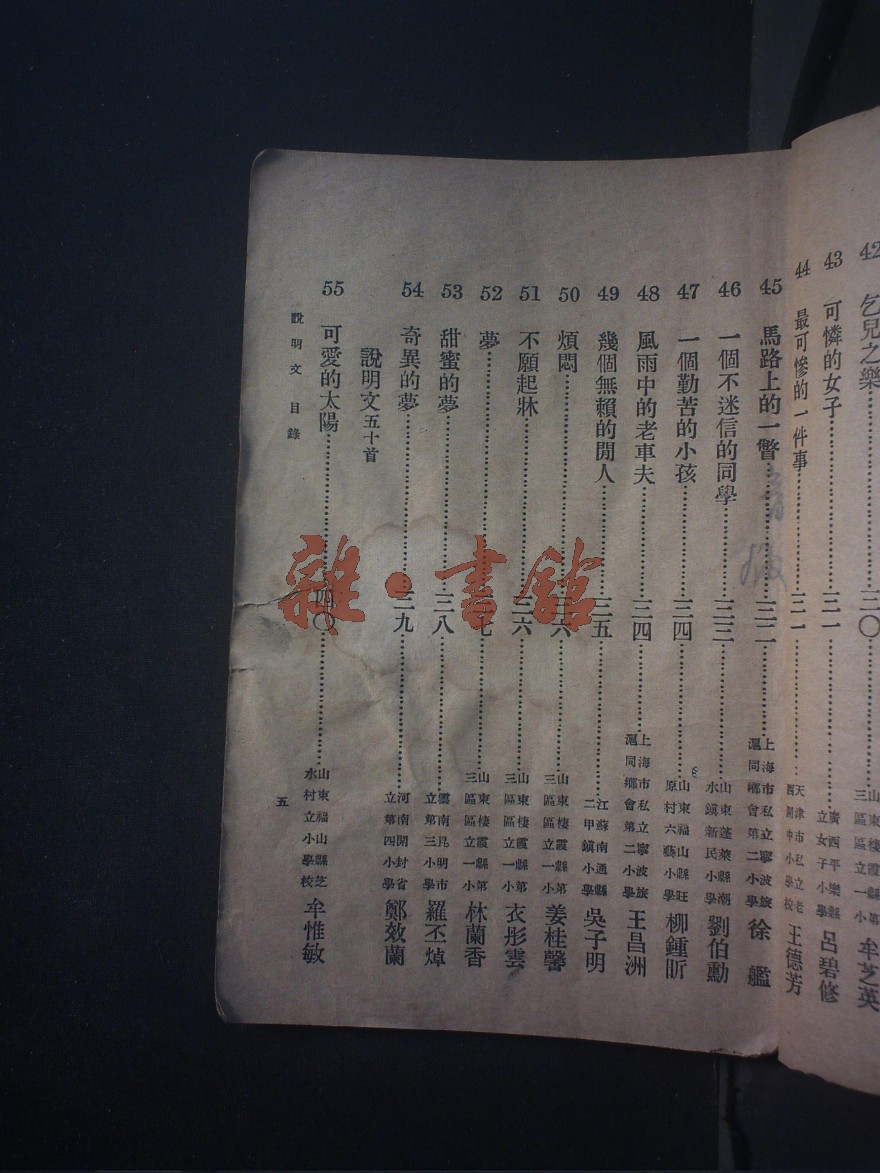 42 乞兒之樂……三〇……山東棲霞縣第三區區立一小 牟芝英
43 可憐的女子……三一……廣西平樂縣立女子小學 呂碧修
44 最可慘的一件事……三一……天津市私立老西開中小學校 王德芳
45 馬路上的一瞥……三二……上海市私立寧波旅滬同鄉會第二小學 徐艦
46 一個不迷信的同學……三三……山東蓬萊縣潮水鎮新民小學 劉伯勳
47 一個勤苦的小孩……三四……山東福山縣旺原村六藝小學 柳鍾昕
48 風雨中的老車夫……三四……上海市私立寧波旅滬同鄉會第二小學 王昌洲
49 幾個無賴的閒人……三五……江蘇南通縣二甲鎮小學 吳子明
50 煩悶……三六……山東棲霞縣第三區區立一小 姜桂馨
51 不願起牀……三六……山東棲霞縣第三區區立一小 衣彤雲
52 夢……三七……山東棲霞縣第三區區立一小 林蘭香
53 甜蜜的夢……三八……雲南昆明市立第三小學 羅丕焯
54 奇異的夢……三九……河南開封省立第四小學 鄭效蘭
說明文五十首
55 可愛的太陽……四〇……山東福山縣芝水村立小學校 牟惟敏
說明文 目錄
五
雜·書館